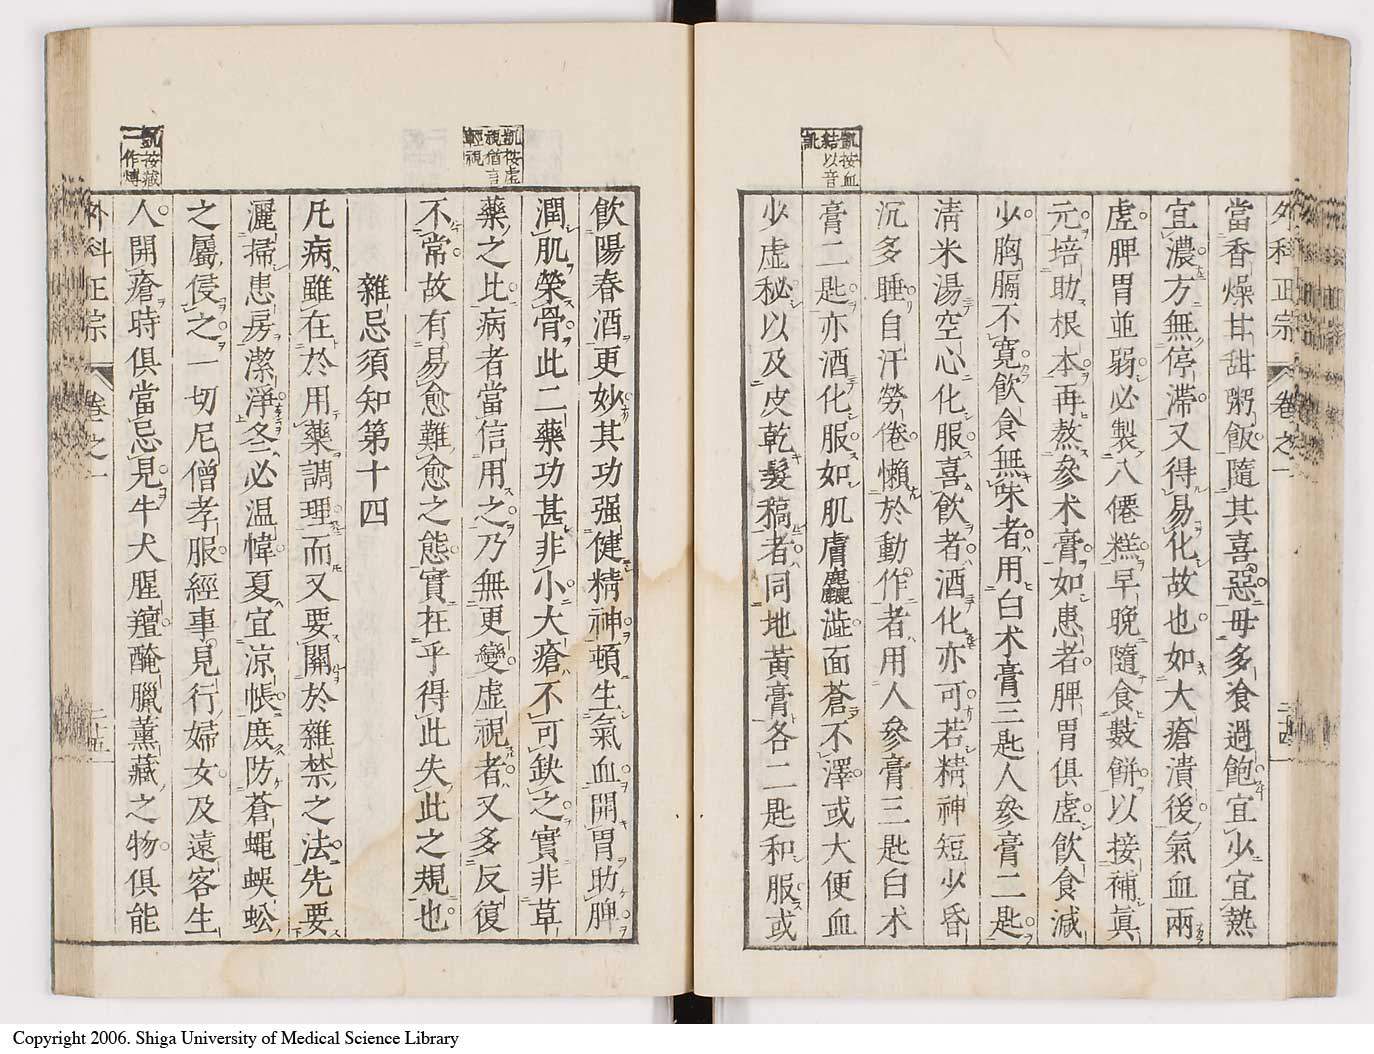 外科正宗 卷之一 二十四
凱按血
結以音
訛
當香燥甘甜粥飯隨其喜惡毋多飡過飽宜少宜熱
宜濃方無停滯又得易化故也如大瘡潰後氣血兩
虛脾胃並弱必製八僊糕早晚隨食數餅以接補眞
元培助根本再熬參朮膏如患者脾胃俱虛飲食減
少胸膈不寬飲食無味者用白术膏三匙人參膏二匙
淸米湯空心化服喜飲者酒化亦可若精神短少昏
沉多睡自汗勞倦懶於動作者用人參膏三匙白术
膏二匙亦酒化服如肌膚麤澁面蒼不澤或大便血
少虛秘以及皮乾髮稿者同地黃膏各二匙和服或
凱按虛
視猶言
輕視
飲陽春酒更妙其功强健精神頓生氣血開胃助脾
潤肌榮骨此二藥功甚非小大瘡不可缺之實非草
藥之比病者當信用之乃無更變虛視者又多反復
不常故有易愈難愈之態實在乎得此失此之規也
雜忌須知第十四
凡病雖在於用藥調理而又要關於雜禁之法先要
灑掃患房潔淨冬必温幃夏宜凉帳庶防蒼蠅蜈蚣
之屬侵之一切尼僧孝服經事見行婦女及遠客生
人開瘡時俱當忌見牛犬腥羶醃臘薰藏之物俱能
凱按藏
一作煿
外科正宗 卷之一 二十五
Copyright 2006. Shiga University of Medical Science Library